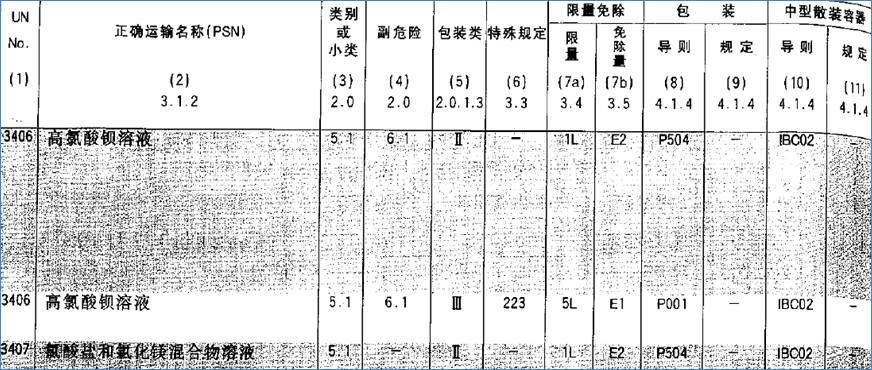 UN No. 正确运输名称(PSN) 类别或小类 副危险 包装类 特殊规定 限量免除 包 装 中型散装容器
限量 免除量 导则 规定 导则 规定
(1) (2) (3) (4) (5) (6) (7a) (7b) (8) (9) (10) (11)
3.1.2 2.0 2.0 2.0.1.3 3.3 3.4 3.5 4.1.4 4.1.4 4.1.4 4.1.4
3406 高氯酸钡溶液 5.1 6.1 Ⅱ — 1L E2 P504 — IBC02 —
3406 高氯酸钡溶液 5.1 6.1 Ⅲ 223 5L E1 P001 — IBC02 —
3407 氯酸盐和氯化镁混合物溶液 5.1 — Ⅱ — 1L E2 P504 — IBC02 —